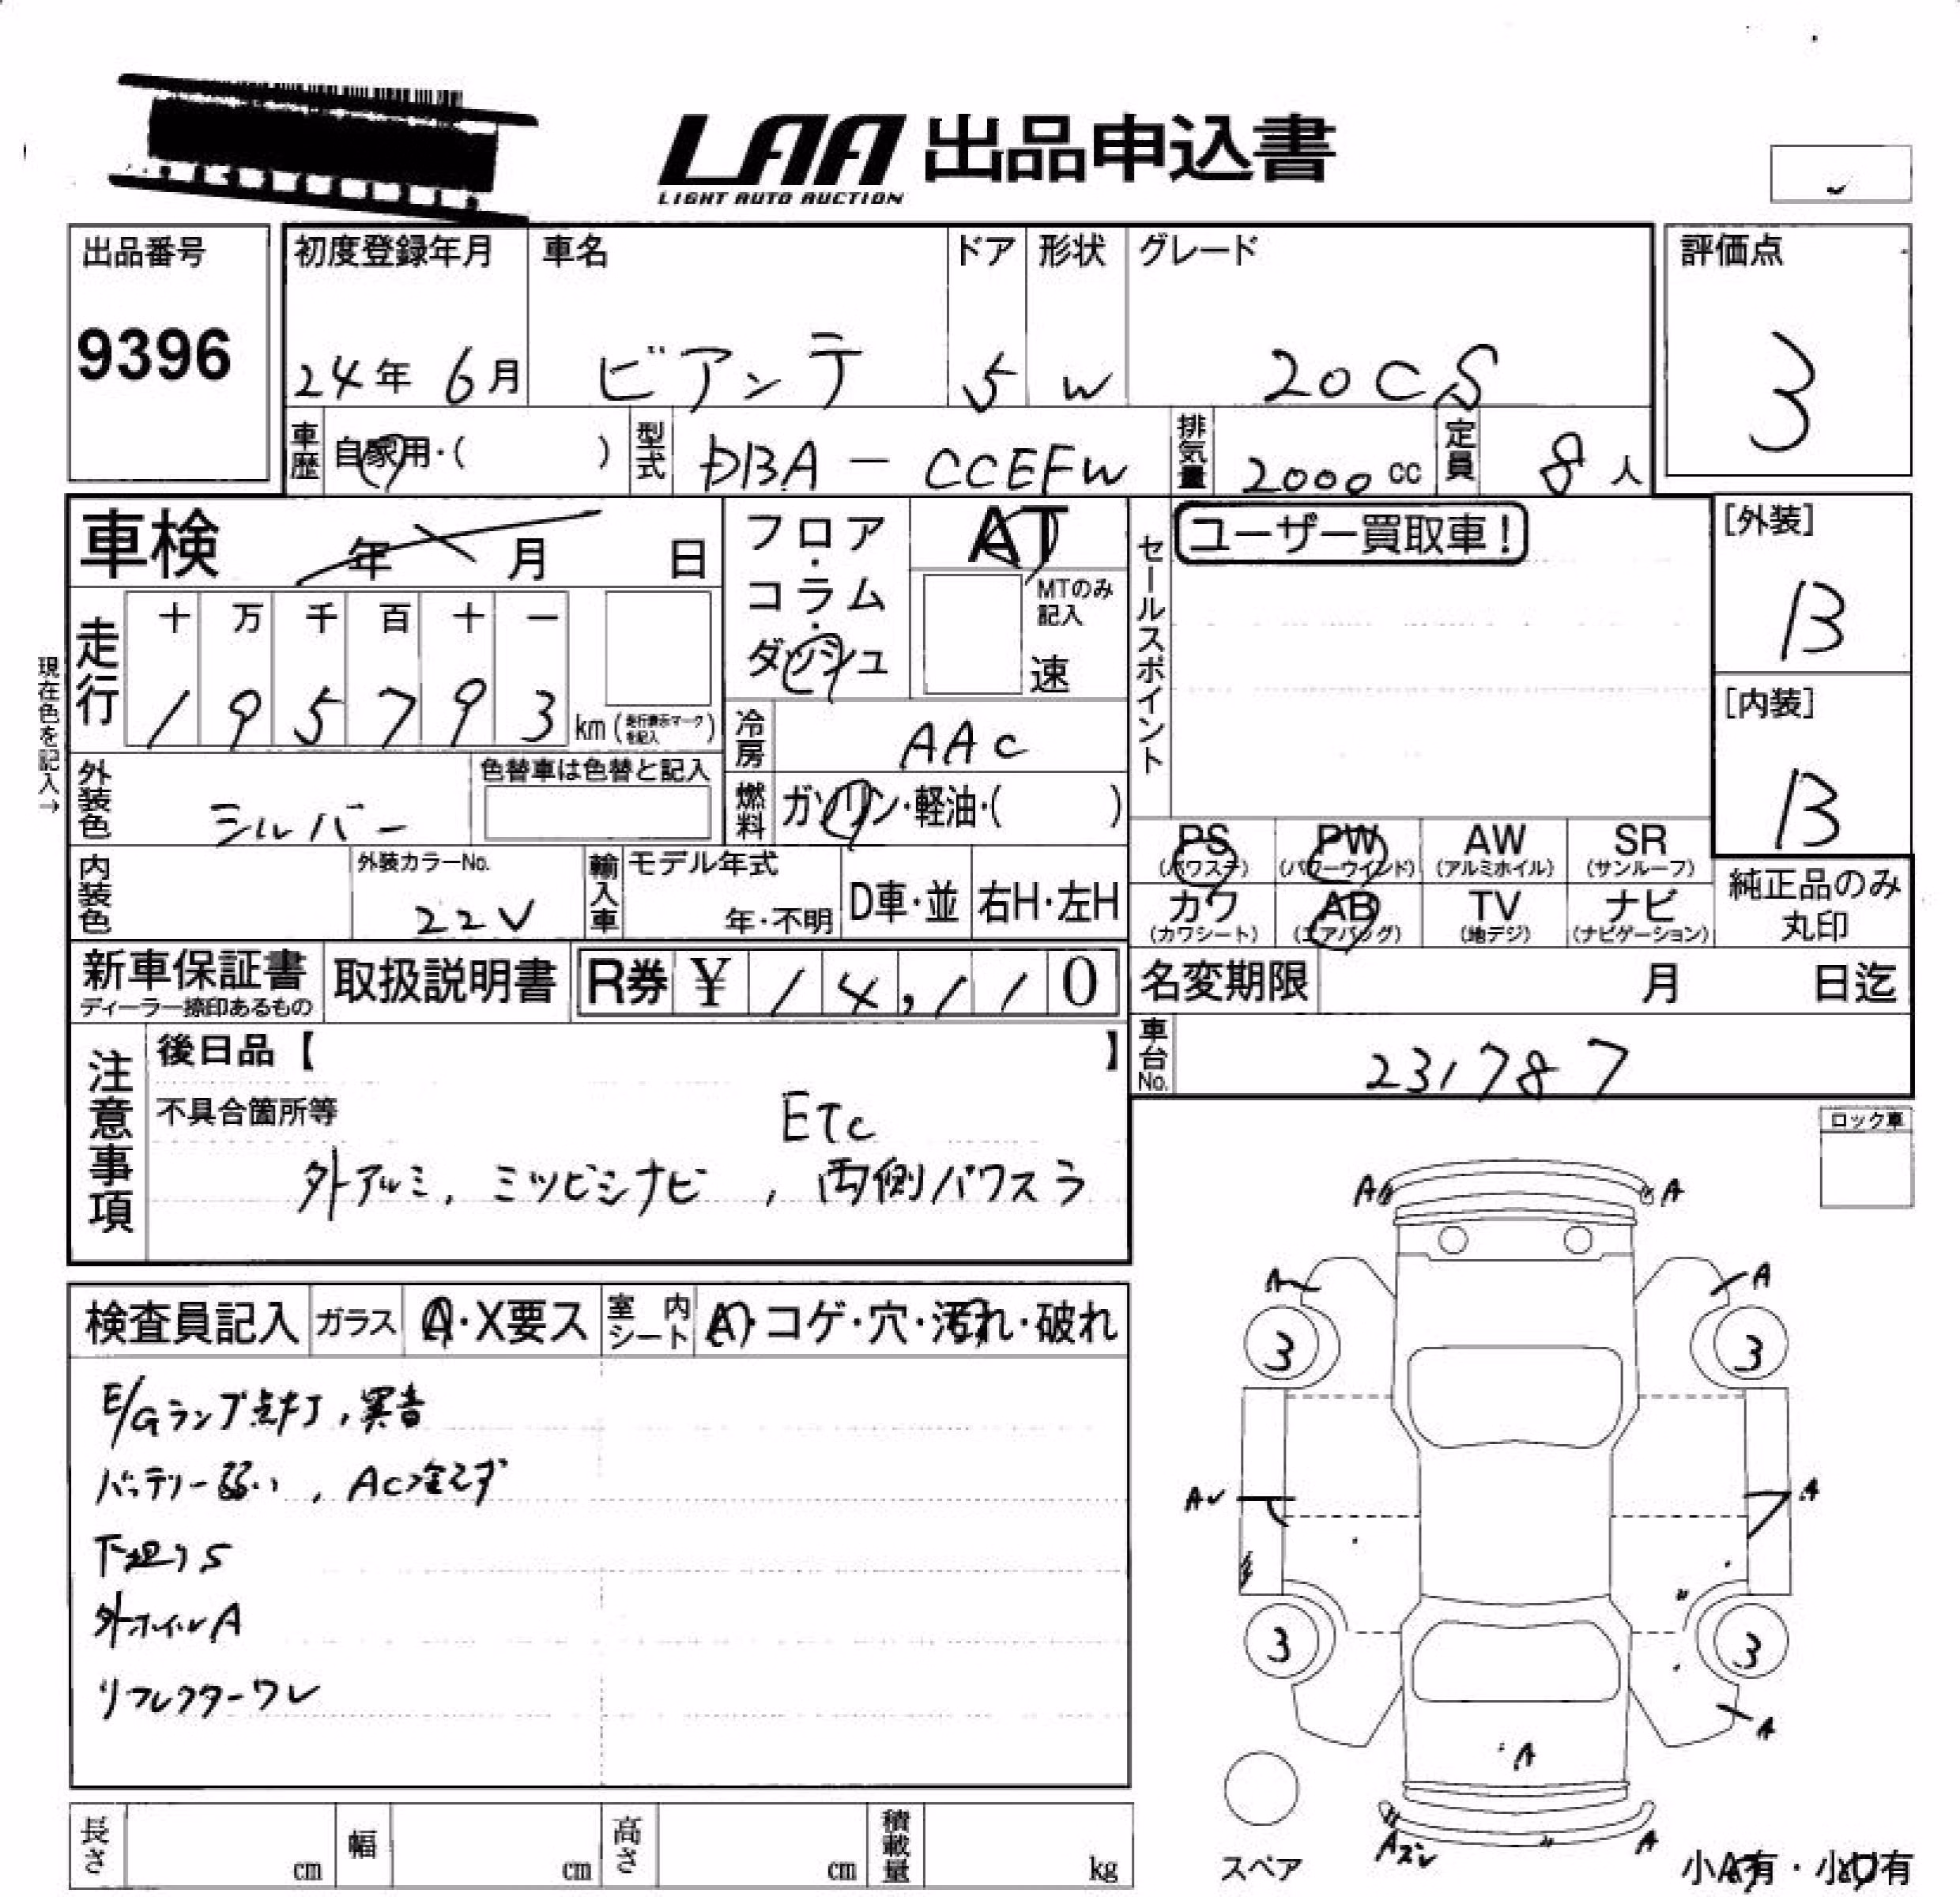 LAA 出品申込書
LIGHT AUTO AUCTION
出品番号
9396
初度登録年月
24年 6月
車名
ビアンテ
ドア
5
形状
W
グレード
20CS
評価点
3
車歴
自家用・( )
型式
DBA - CCEFW
排気量
2000 cc
定員
8 人
車検
年 月 日
フロア・コラム・ダッシュ
AT
MTのみ記入
速
セールスポイント
ユーザー買取車!
[外装]
B
[内装]
B
現在色を記入→
走行
十 万 千 百 十 一
1 9 5 7 9 3
km (走行表示マークを記入)
冷房
AAC
外装色
シルバー
色替車は色替と記入
燃料
ガソリン・軽油・( )
内装色
外装カラーNo.
22V
輸入車
モデル年式
年・不明
D車・並
右H・左H
PS
(パワステ)
PW
(パワーウインド)
AW
(アルミホイル)
SR
(サンルーフ)
カワ
(カワシート)
AB
(エアバッグ)
TV
(地デジ)
ナビ
(ナビゲーション)
純正品のみ
丸印
新車保証書
ディーラー捺印あるもの
取扱説明書
R券 ¥ 14,110
名変期限 月 日迄
車台No.
231787
注意事項
後日品【 】
不具合箇所等
ETC
外アルミ, ミツビシナビ , 両側パワスラ
ロック車
検査員記入
ガラス
A・X要ス
室内シート
A・コゲ・穴・汚れ・破れ
E/Gランプ点灯, 異音
バッテリー弱い, AC冷えず
下廻りS
外ホイルA
リフレクターワレ
A A
A A
3 3
A A
3 3
A
A
Aズレ A
スペア
小A有・小U有
長さ cm
幅 cm
高さ cm
積載量 kg